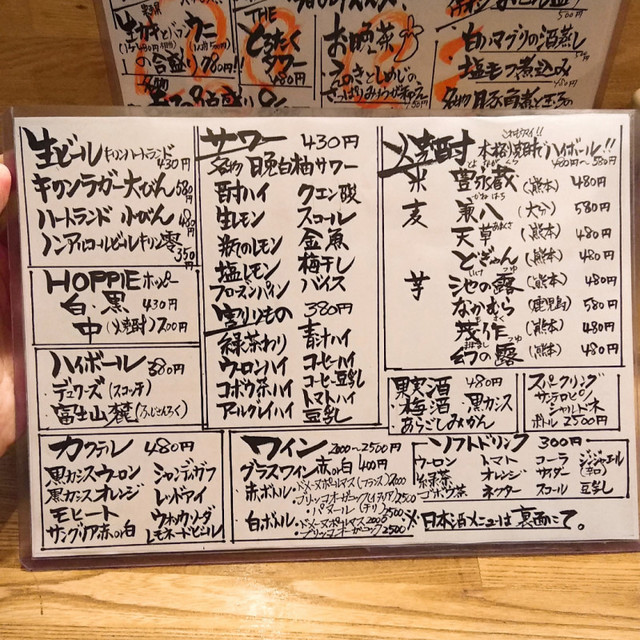 ウニ
の合盛り 780円!!
THE
とろたく
タワー
480円
お晒し茶
えのきとしめじの
500円
白ハマグリの酒蒸し
塩モツ煮込み
480円
生ビール キリンハートランド 430円
キリンラガー大びん 580円
ハートランド 小びん 480円
ノンアルコールビール キリン零 350円
HOPPIE ホッピー
白・黒 430円
中(焼酎)200円
ハイボール 380円
デュワーズ(スコッチ)
富士山麓(ふじさんろく)
サワー 430円
名物 晩白柚サワー
酎ハイ クエン酸
生レモン スコール
瓶のレモン 金魚
塩レモン 梅干し
フローズンパイン バイス
割りもの 380円
緑茶わり 青汁ハイ
ウーロンハイ コーヒーハイ
コーヒー豆乳
ゴボウ茶ハイ トマトハイ
アルクレイハイ 豆乳
焼酎 本格焼酎でハイボール!!
400円~580円
米 豊永蔵 (熊本) 480円
麦 兼八 (大分) 580円
天草 (熊本) 480円
どぎゃん (熊本) 480円
芋 池の露 (熊本) 480円
なかむら (鹿児島) 580円
茂作 (熊本) 480円
幻の露 (熊本) 480円
果実酒 480円
梅酒 黒カシス
あらごしみかん
スパークリング
サンテロピノ
シャルドネ
ボトル 2500円
カクテル 480円
黒カシスウーロン シャンディガフ
黒カシスオレンジ レッドアイ
モヒート ウォッカソーダ
サングリア赤or白 レモネードビール
ワイン 2000~2500円
グラスワイン 赤or白 400円
赤ボトル・ドメーヌポルマス(フランス)2000
・プリッコオーガニック(イタリア)2500
・パヌール(チリ)2500
白ボトル・ドメーヌポルマス 2000
・プリッコオーガニック 2500
ソフトドリンク 300円
ウーロン トマト コーラ ジンジャエール
(辛口)
緑茶 オレンジ サイダー
ゴボウ茶 ネクター スコール 豆乳
※日本酒メニューは裏面にて。